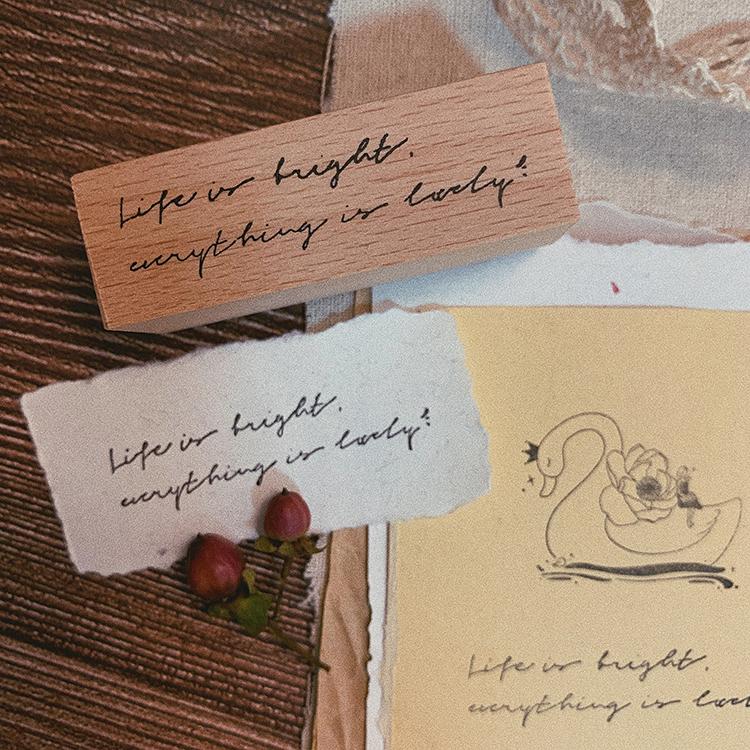 Life is bright.
everything is lovely!
Life is bright.
everything is lovely!
Life is bright.
everything is